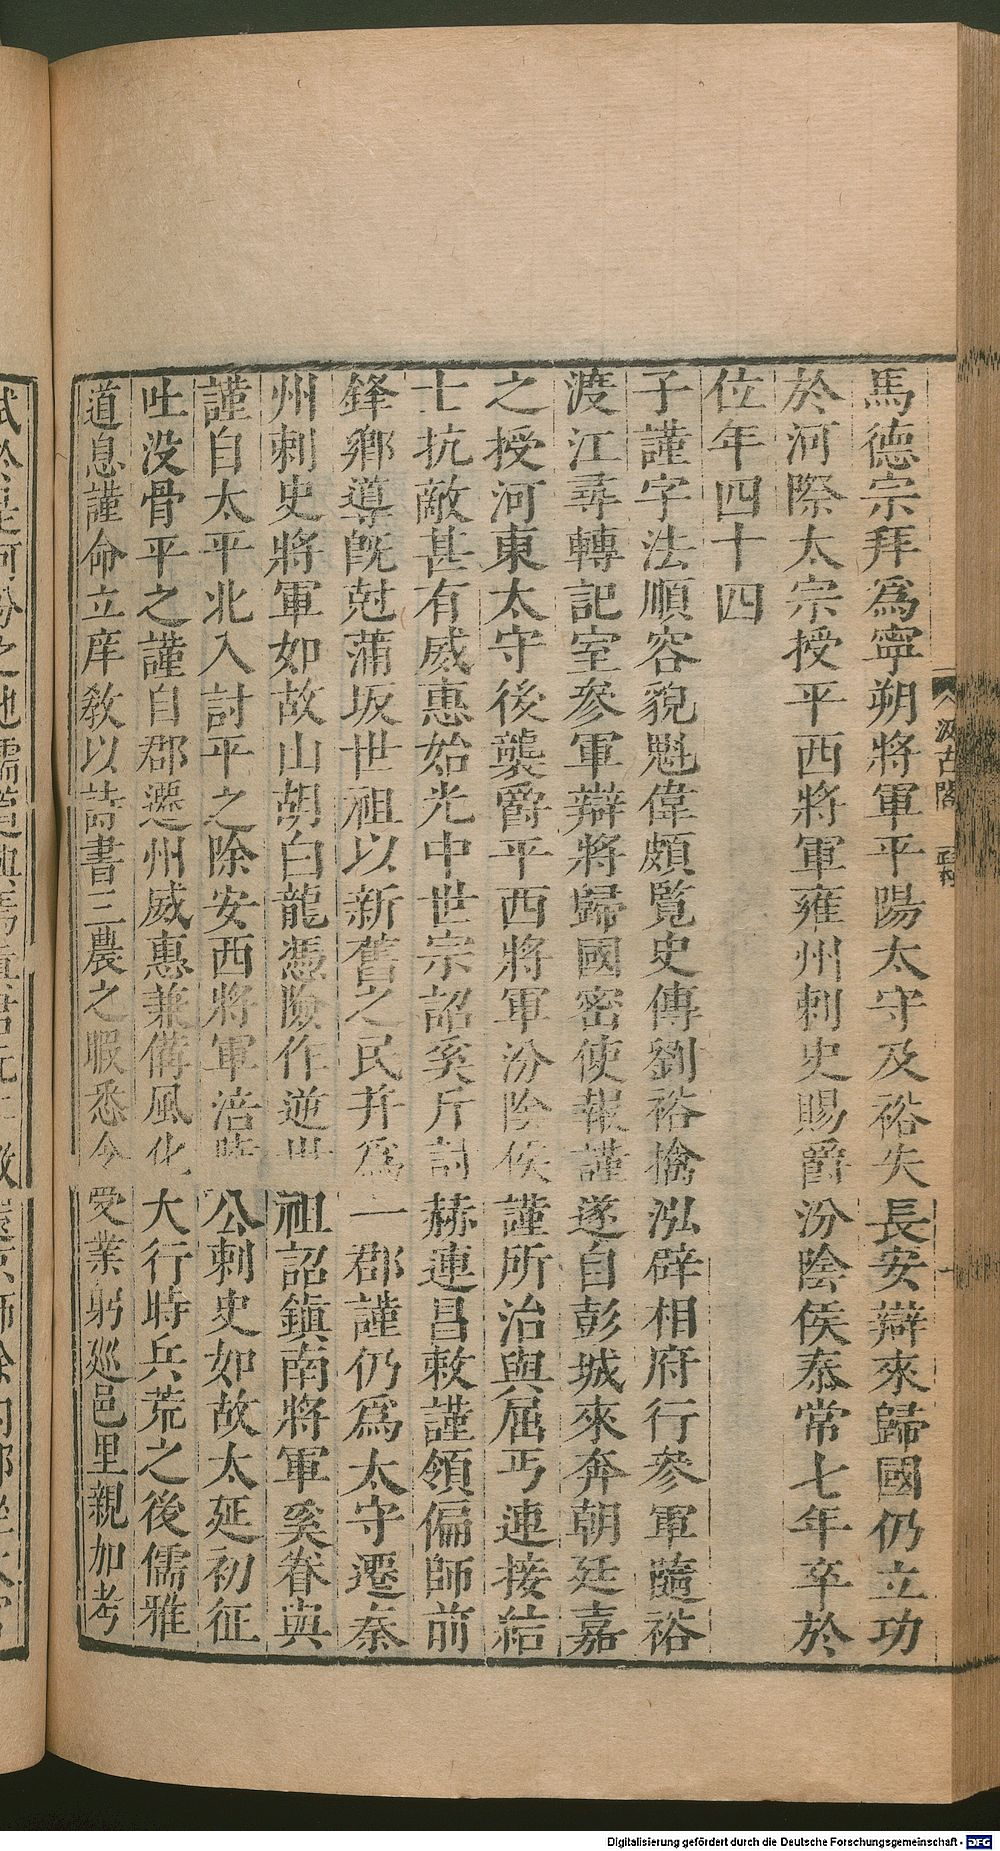 馬德宗拜爲寧朔將軍平陽太守及裕失長安辯來歸國仍立功
於河際太宗授平西將軍雍州刺史賜爵汾陰侯泰常七年卒於
位年四十四
子謹字法順容貌魁偉頗覧史傳劉裕擒泓辟相府行參軍隨裕
渡江尋轉記室參軍辯將歸國密使報謹遂自彭城來奔朝廷嘉
之授河東太守後襲爵平西將軍汾陰侯謹所治與屈丐連接結
士抗敵甚有威惠始光中世宗詔奚斤討赫連昌敕謹領偏師前
鋒鄉導旣尅蒲坂世祖以新舊之民并爲一郡謹仍爲太守遷秦
州刺史將軍如故山胡白龍憑險作逆世祖詔鎮南將軍奚眷與
謹自太平北入討平之除安西將軍涪陵公刺史如故太延初征
吐没骨平之謹自郡遷州威惠兼備風化大行時兵荒之後儒雅
道息謹命立庠敎以詩書三農之暇悉令受業躬巡邑里親加考
汲古閣
Digitalisierung gefördert durch die Deutsche Forschungsgemeinschaft - DFG